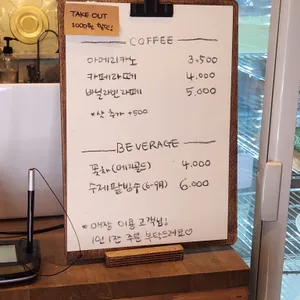 TAKE OUT
1000원 할인!
COFFEE
아메리카노 3,500
카페라떼 4,000
바닐라빈라떼 5,000
*샷 추가 +500
BEVERAGE
꽃차(메리골드) 4,000
수제팥빙수(6-9月) 6,000
*매장 이용 고객님!
1인 1잔 주문 부탁드려요♡